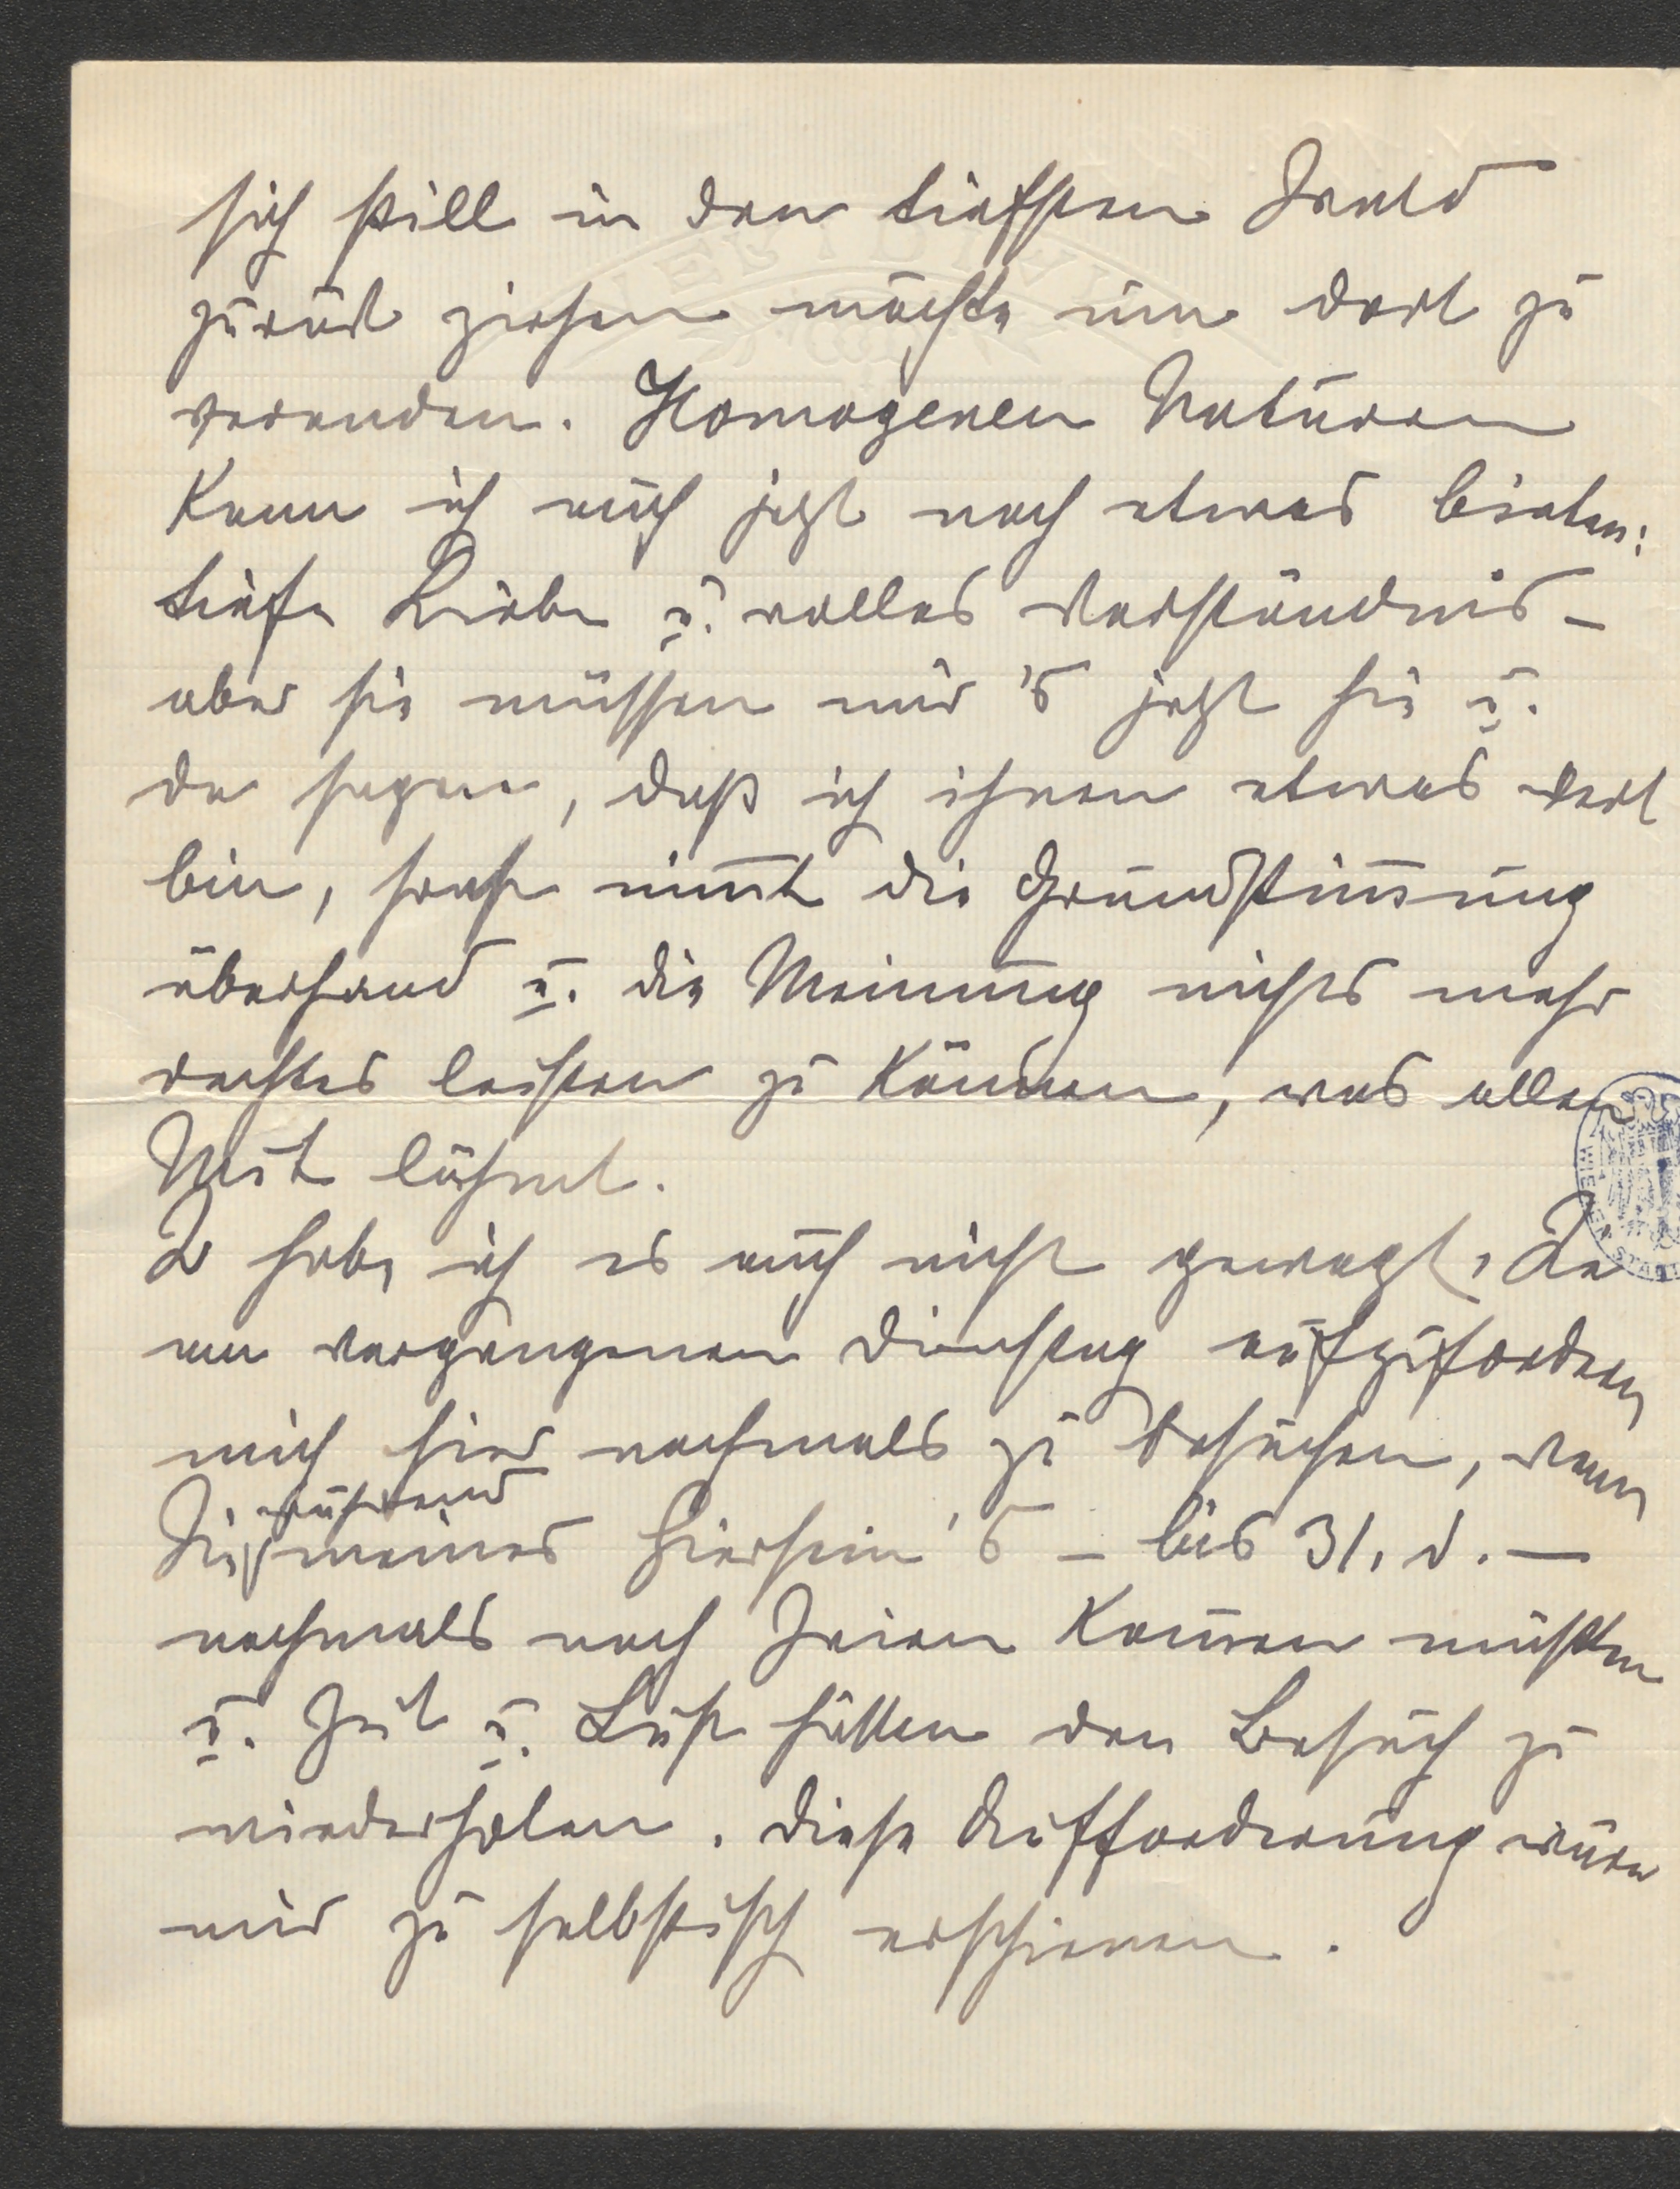 sich still in den tiefsten Wald
zurück ziehen möchte um dort zu
verenden. Homogenen Naturen
kann ich auch jetzt noch etwas bieten:
tiefe Liebe u. volles Verständnis –
aber sie müssen mir 's jetzt hie u.
da sagen, daß ich ihnen etwas wert
bin, sonst nimmt die Grundstimmung
überhand u. die Meinung nichts mehr
rechtes leisten zu können, was allen
Mut lähmt.
So habe ich es auch nicht gewagt, Sie
am vergangenen Dienstag aufzufordern
mich hier nochmals zu besuchen, wenn
während
Sie meines Hierseins – bis 31. d. –
nochmals nach Wien kommen müßten
u. Zeit u. Lust hätten den Besuch zu
wiederholen. Diese Aufforderung wäre
mir zu selbstisch erschienen.
WIENER STADT